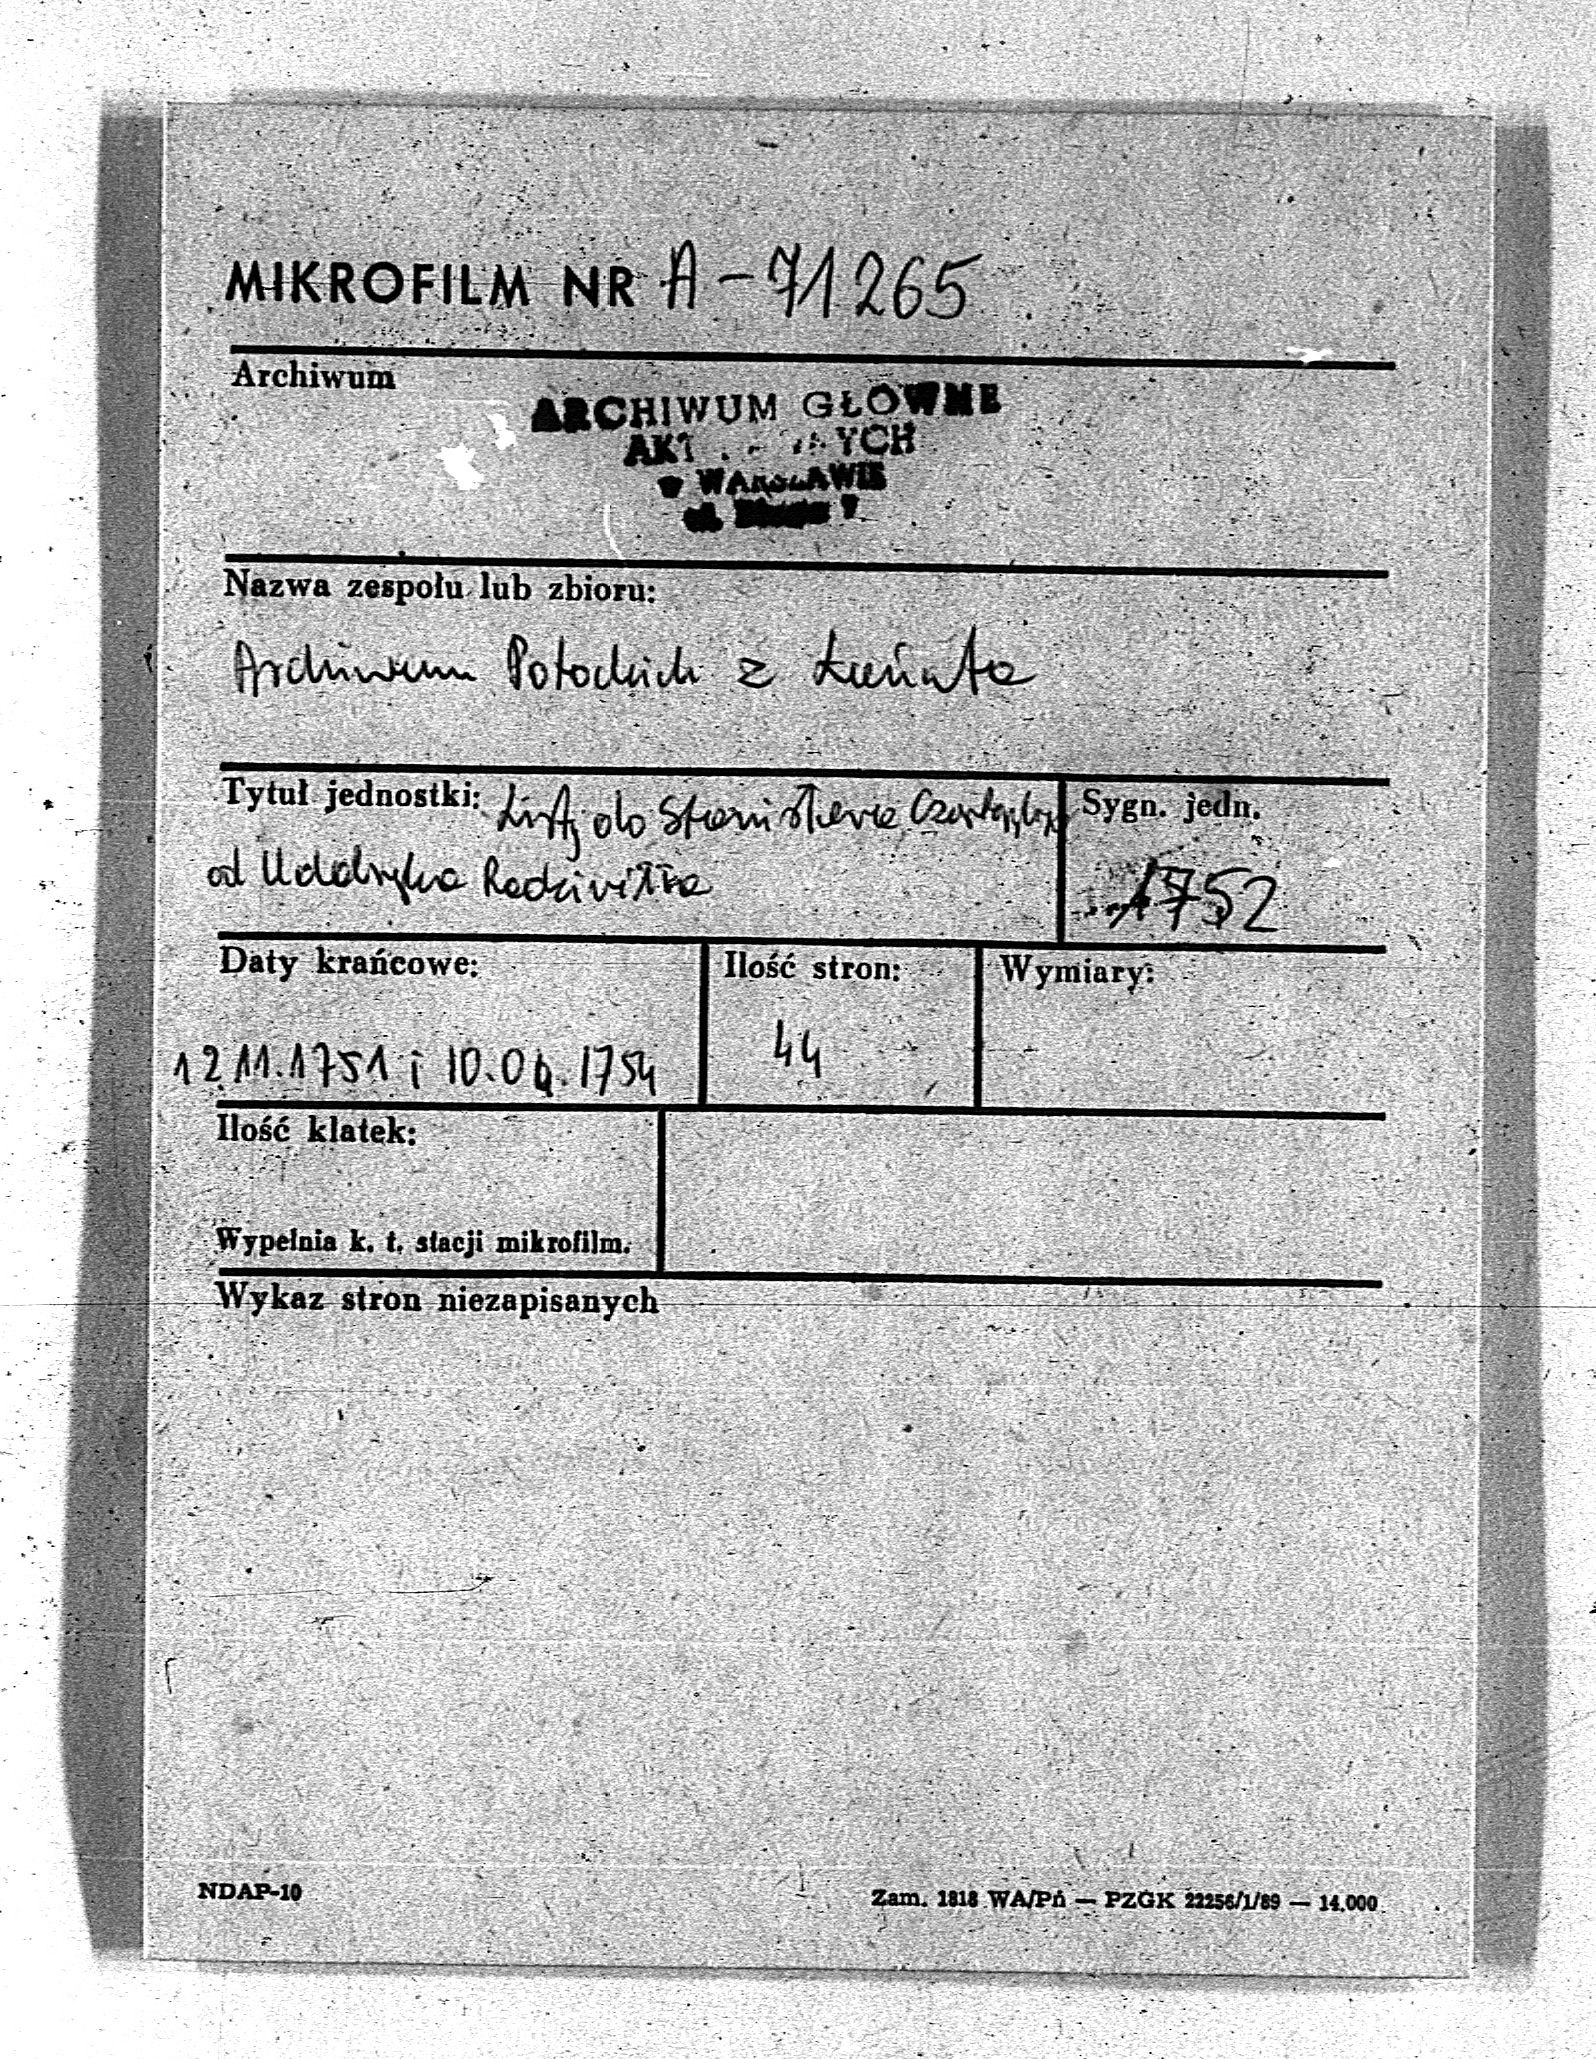 MIKROFILM NR A-71265
Archiwum
ARCHIWUM GŁÓWNE
AKT YCH
w WARSZAWIE
ul. 7
Nazwa zespołu lub zbioru:
Archiwum Potockich z Łańcuta
Tytuł jednostki: Listy do Stanisława
Sygn. jedn.
od Radziwiłła
1752
Daty krańcowe:
Ilość stron:
Wymiary:
12.11.1751 i 10.04.1754
44
Ilość klatek:
Wypełnia k. t. stacji mikrofilm.
Wykaz stron niezapisanych
NDAP-10
Zam. 1818 WA/Pń — PZGK 22256/1/89 — 14.000